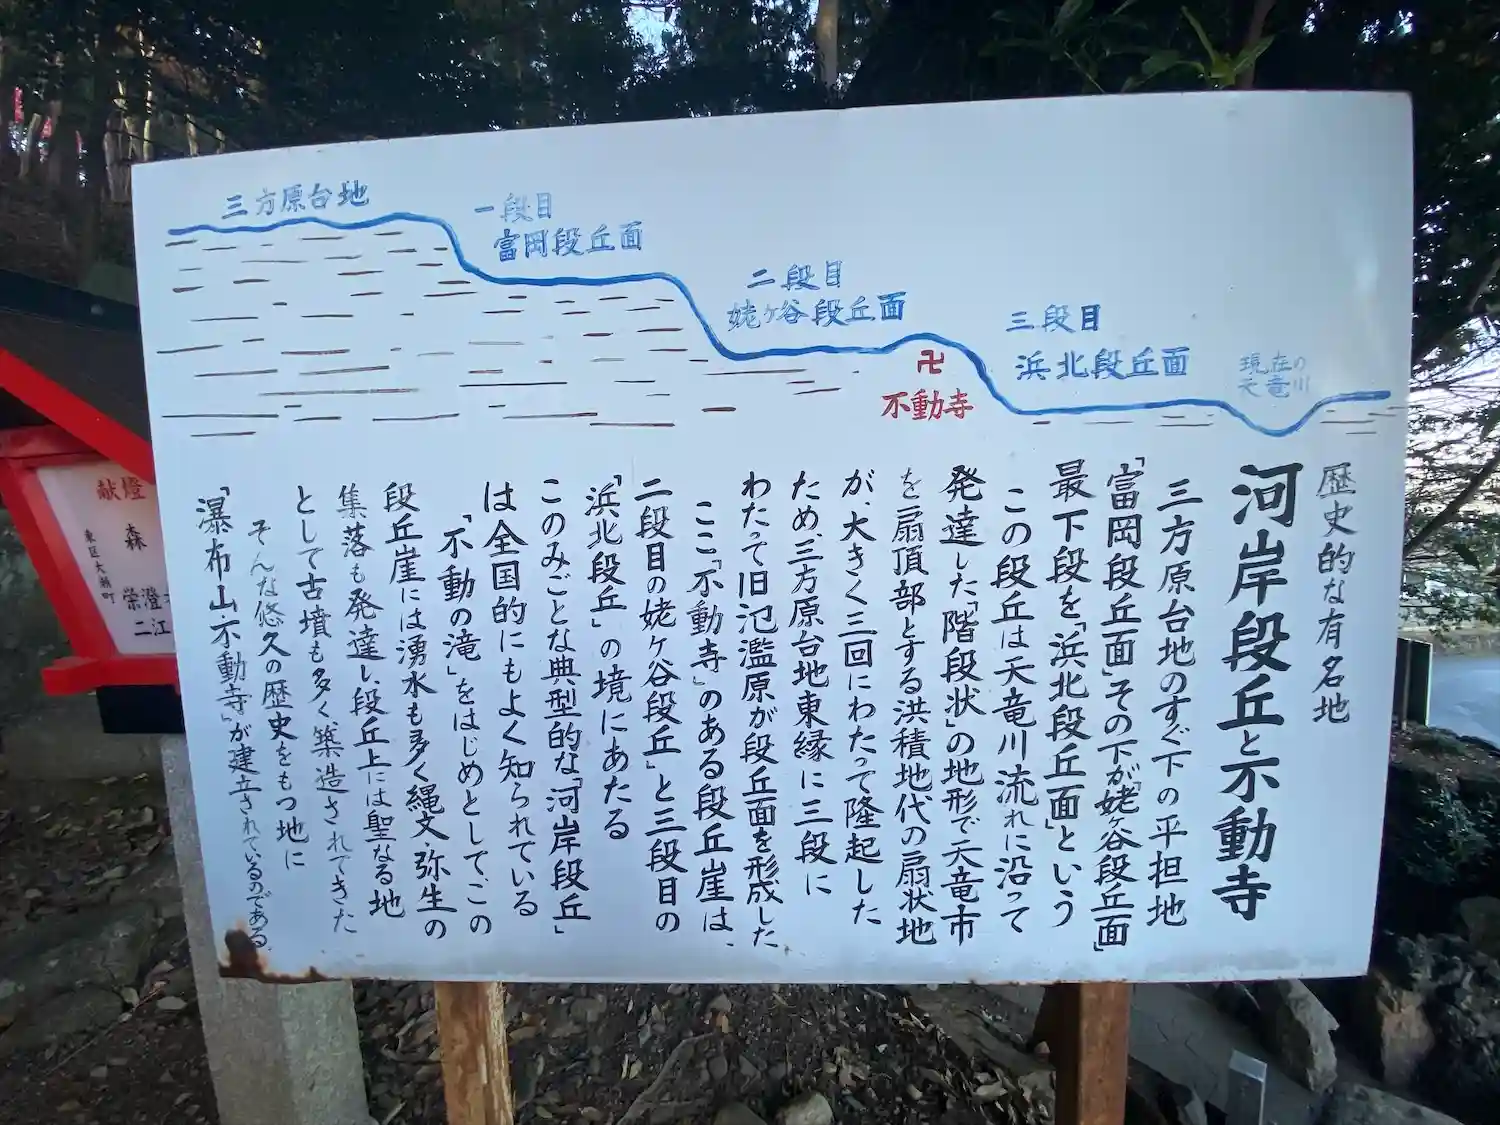 三方原台地
一段目
富岡段丘面
二段目
姥ヶ谷段丘面
三段目
浜北段丘面
現在の
天竜川
卍
不動寺
歴史的な有名地
河岸段丘と不動寺
三方原台地のすぐ下の平担地
「富岡段丘面」その下が「姥ヶ谷段丘面」
最下段を「浜北段丘面」という
この段丘は天竜川流れに沿って
発達した「階段状」の地形で天竜市
を扇頂部とする洪積地代の扇状地
が、大きく三回にわたって隆起した
ため、三方原台地東縁に三段に
わたって旧氾濫原が段丘面を形成した
ここ「不動寺」のある段丘崖は、
二段目の姥ヶ谷段丘」と三段目の
「浜北段丘」の境にあたる
このみごとな典型的な「河岸段丘」
は全国的にもよく知られている
「不動の滝」をはじめとしてこの
段丘崖には湧水も多く縄文・弥生の
集落も発達し、段丘上には聖なる地
として古墳も多く築造されてきた
そんな悠久の歴史をもつ地に
「瀑布山・不動寺」が建立されているのである。
献燈
森
東区大瀬町
栄澄
二江